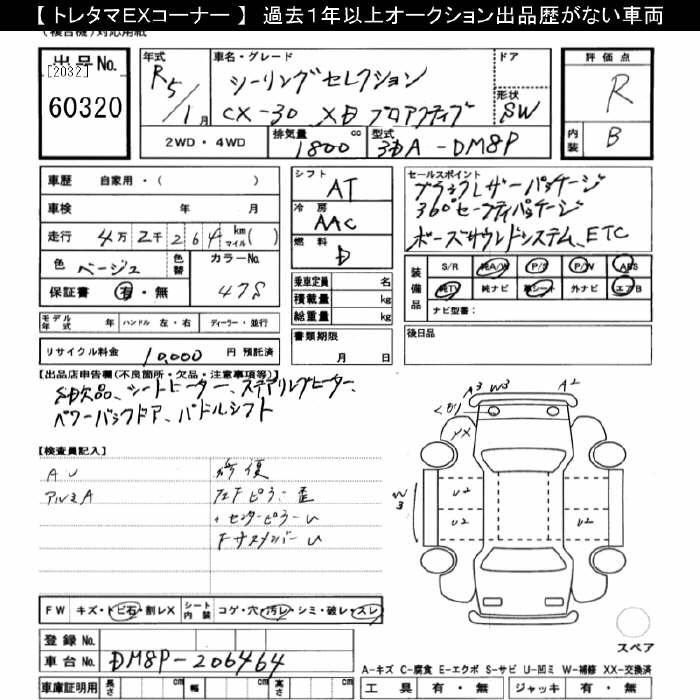 【 トレタマEXコーナー 】 過去１年以上オークション出品歴がない車両
出品No.
[2032]
60320
年式
R5/1月
車名・グレード
シーリングセレクション
CX-30 XD プロアクティブ
ドア
形状
SW
評価点
R
内装
B
2WD・4WD
排気量
1800
cc
型式
3DA-DM8P
車歴 自家用・( )
車検 年 月
走行 4万2千264 km マイル( )
色 ベージュ
色替
カラーNo.
47S
保証書 有・無
モデル年式 年 ハンドル 左・右 ディーラー・並行
リサイクル料金 10,000 円 預託済
シフト
AT
冷房
AAC
燃料
D
乗車定員 名
積載量 kg
総重量 kg
書類期限
月 日
セールスポイント
ブラックレザーパッケージ
360°セーフティパッケージ
ボーズサウンドシステム、ETC
装備品
S/R 純A/W P/S P/W ABS
純TV 純ナビ 革シート 外ナビ エアB
ナビ型番：
後日品
【出品店申告欄(不良箇所・欠品・注意事項等)】
SD欠品、シートヒーター、ステアリングヒーター、
パワーバックドア、パドルシフト
【検査員記入】
AU
アルミA
修復
センターピラーU
A3 W3 A2
YX
W3
U2 U2
U2 U2
FW キズ・トビ石・割レX シート内装 コゲ・穴・汚レ・シミ・破レ・スレ
スペア
登録 No.
車台 No. DM8P-206464
A-キズ C-腐食 E-エクボ S-サビ U-凹ミ W-補修 XX-交換済
車庫証明用 長さ cm 幅 cm 高さ cm
工具 有・無 ジャッキ 有・無